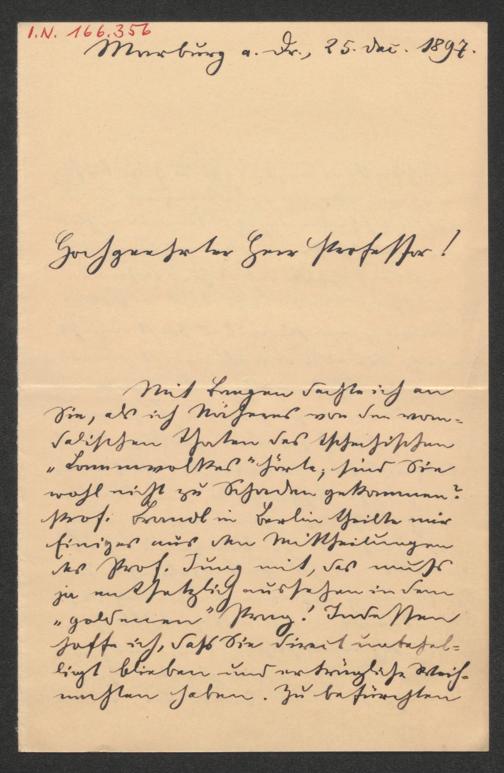 I.N. 166.356
Marburg a. Dr., 25. Dec. 1897.
Hochgeehrter Herr Professor!
Mit Bangen dachte ich an
Sie, als ich Näheres von den van-
dalischen Thaten des tschechischen
„Lammvolkes" hörte; sind Sie
wohl nicht zu Schaden gekommen?
Prof. Brandl in Berlin theilte mir
Einiges aus den Mittheilungen
des Prof. Jung mit, das muss
ja entsetzlich aussehen in dem
„goldenen" Prag! Indessen
hoffe ich, dass Sie direct unbehel-
ligt blieben und erträgliche Weih-
nachten haben. Zu befürchten